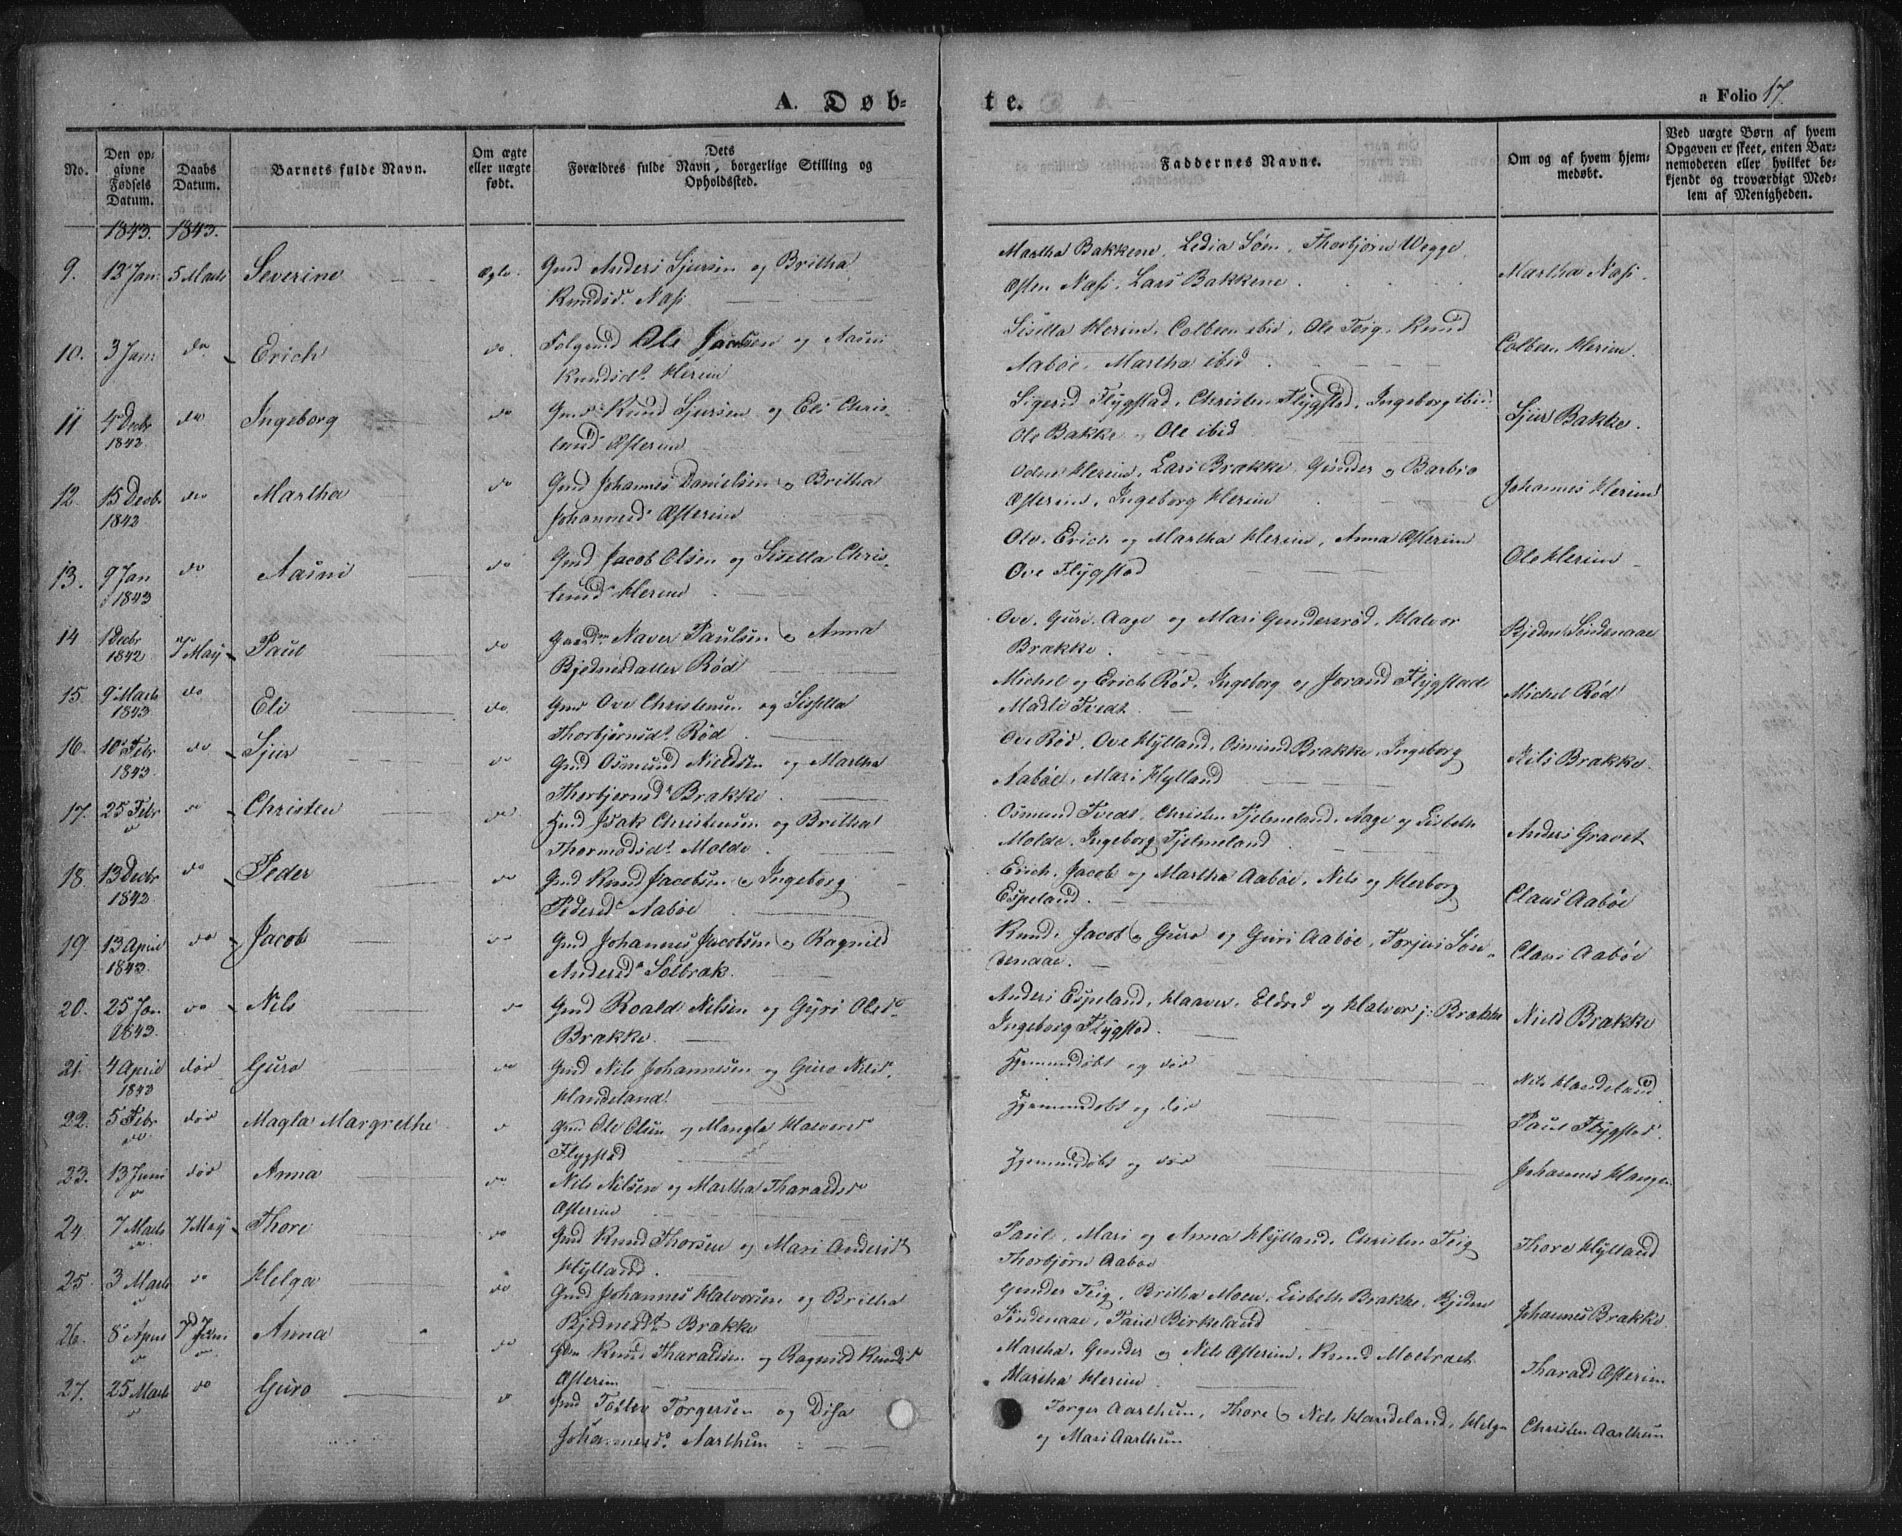 A. Døb-
te.
a Folio 17.
No.
Den op-
givne
Fødsels
Datum.
Daabs
Datum.
Barnets fulde Navn.
Om ægte
eller uægte
født.
Dets
Forældres fulde Navn, borgerlige Stilling og
Opholdssted.
Faddernes Navne.
Om og af hvem hjem-
medøbt.
Ved uægte Børn af hvem
Opgaven er skeet, enten Bar-
nemoderen eller hvilket be-
kjendt og troværdigt Med-
lem af Menigheden.
1843. 1843.
9. 13 Jan: 5 Marts Severine Ægte. Gmd Anders Sjursen og Britha
Knudsd. Næss
Martha Bakkene, Ledia Søm, Thorbjørn Wegge,
Østen Næss. Lars Bakkene
Martha Næss.
10. 3 Jan: do Erich do. Folgemd Ole Jacobsen og Aasni
Knudsd. Herim
Sisella Herim. Colbeen ibid. Ole Teig. Knud
Aabøe. Martha ibid
Colbeen Herim.
11 4 Decbr 1842. do Ingeborg do Gmd Knud Sjursen og Eli Chris-
tensd Østerim
Sigerid Flygstad. Christen Flygstad. Ingeborg ibid.
Ole Bakke og Ole ibid
Sjur Bakke.
12. 15 Decbr 1842 do Martha do Gmd Johannes Danielsen og Britha
Johannesd Østerim
Oden Herim, Lars Brække, Gunder og Barbro
Østerim, Ingeborg Herim
Johannes Herim
13. 9 Jan 1843 do Aasni do Gmd Jacob Olsen og Sisella Chris-
tensd Herim
Ole. Erich og Martha Herim, Anna Østerim
Ove Flygstad
Ole Herim
14 1 Decbr 1842 7 May Paul do Gaardm Naver Paulsen og Anna
Bjednesdatter Rød
Ove. Guri. Aage og Mari Gundersrød. Halvor
Brække.
Bjeden Søndenaae
15. 9 Marts 1843 do Eli do. Gmd Ove Christensen og Sissella
Thorbjørnsd. Rød
Michel og Erich Rød. Ingeborg og Jorand Flygstad
Madli Tvedt.
Michel Rød
16. 10 Febr 1843. do Sjur do Gmd Osmund Nielsen og Martha
Thorbjørnsd Brække.
Ove Rød. Ove Hylland. Osmund Brække. Ingeborg
Aabøe, Mari Hylland
Nils Brække.
17. 25 Febr do Christen do Gmd Isak Christensen og Britha
Thormodsd. Molde.
Osmund Tvedt. Christen Fjelmeland. Aage og Lisbeth
Molde. Ingeborg Fjelmeland.
Anders Gravet
18. 13 Decbr 1842. do Peder do Gmd Knud Jacobsen og Ingeborg
Pedersd Aabøe
Erich, Jacob og Martha Aabøe. Nils og Herborg
Espeland.
Claus Aabøe
19. 13 April 1843. do Jacob do Gmd Johannes Jacobsen og Ragnild
Andersd Solbrak.
Knud. Jacob og Guro og Guri Aabøe, Torjus Søn-
denaae.
Claus Aabøe
20. 25 Jan 1843. do Nils do Gmd Roald Nilsen og Gyri Olsd
Brække.
Anders Espeland, Haaver. Eldrid og Halvor j: Brække
Ingeborg Flygstad.
Niels Brække
21. 4 April 1843 død Guro do Gmd Nils Johannesen og Guro Nilsd.
Handeland.
Hjemmedøbt og død
Nils Handeland.
22. 5 Febr do død Magla Margrethe do Gmd Ole Olsen og Mangla Halvorsd
Flygstad
Hjemmedøbt og død
Paul Flygstad.
23. 13 Juni do død Anna do Nils Nilsen og Martha Tharaldsd
Østerim
Hjemmedøbt og død
Johannes Hauge
24. 7 Marts do 7 May Thore do Gmd Knud Thorsen og Mari Andersd
Hylland.
Paul. Mari og Anna Hylland. Christen Teig
Thorbjørn Aabøe
Thore Hylland
25. 3 Marts do do Helga do Gmd Johannes Halvorsen og Britha
Bjednesd Brække
Gunder Teig. Britha Moen. Lisbeth Brække. Bjeden
Søndenaae, Paul Birkeland
Johannes Brække.
26. 8 April do 7 Juni do Anna do Gdm Knud Tharaldsen og Ragnild Knudsd
Østerim
Martha. Gunder og Nils Østerim. Knud Molbræt
Martha Herim.
Tharald Østerim
27. 25 Marts do Guro do Gmd Tollev Torgersen og Disa
Johannesd. Aarthun
Torger Aarthun, Thore og Nils Handeland. Helga
og Mari Aarthun
Christen Aarthun